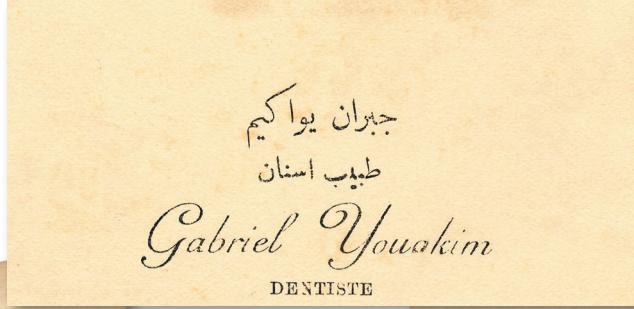 جبران يواكيم
طبيب اسنان
Gabriel Youakim
DENTISTE